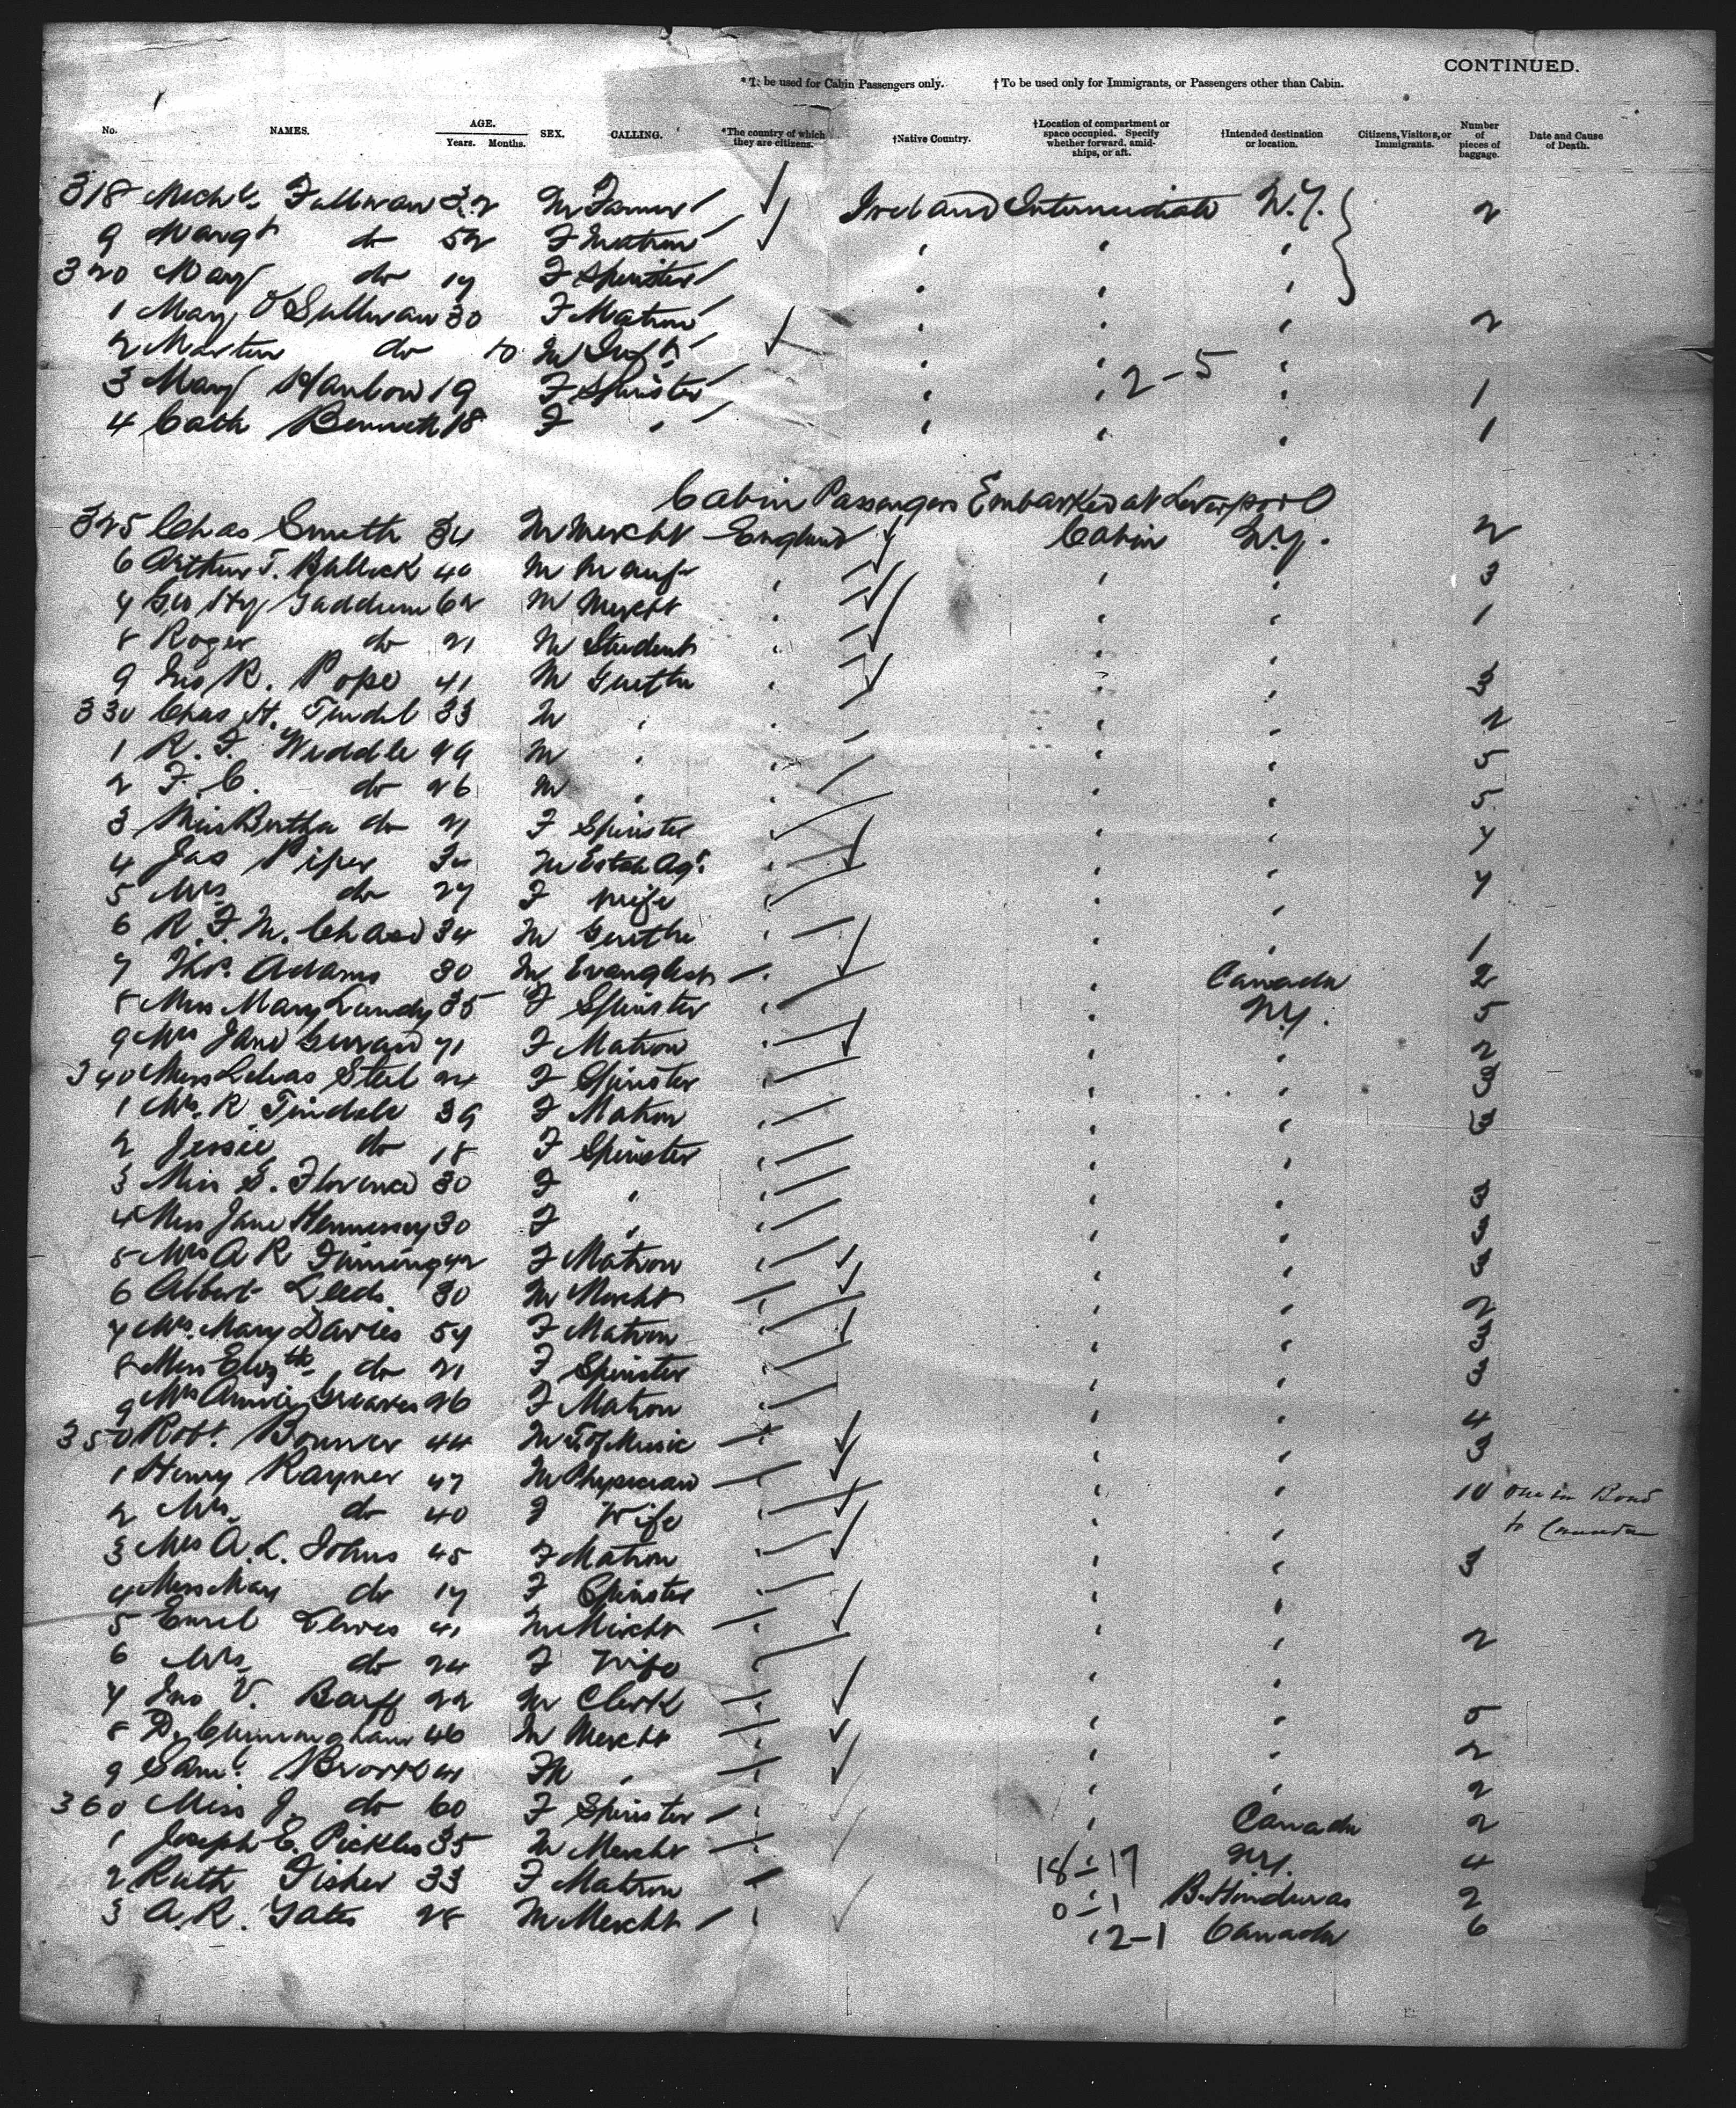 CONTINUED.
* To be used for Cabin Passengers only. † To be used only for Immigrants, or Passengers other than Cabin.
No. NAMES. AGE. Years. Months. SEX. CALLING. *The country of which they are citizens. †Native Country. †Location of compartment or space occupied. Specify whether forward, amidships, or aft. †Intended destination or location. Citizens, Visitors, or Immigrants. Number of pieces of baggage. Date and Cause of Death.
318 Michl. M Farmer Ireland Intermediate N.Y. 2
9 Margt do 52 F Matron
320 Mary do 17 F Spinster
1 Mary O'Sullivan 30 F Matron 2
2 Martin do 10 M Inft
3 Mary Hanlow 19 F Spinster 2-5 1
4 Cath Bennett 18 F " 1
Cabin Passengers Embarked at Liverpool
325 Chas Smith 34 M Mercht England Cabin N.Y. 2
6 Arthur T. 40 M Manufr " " " 3
7 Geo Hy Gaddum 62 M Mercht " " " 1
8 Roger do 21 M Student " " "
9 Jno R. Pope 41 M Gentln " " " 3
330 Chas H. Tindel 33 M " " " " 2
1 R. F. Weddle 29 M " " " " 5
2 F. C. do 26 M " " " " 5
3 Miss Bertha do 21 F Spinster " " " 4
4 Jas Piper 34 M Estate Agt " " " 4
5 Mrs do 27 F Wife " " "
6 R. F. M. Chase 34 M Gentln " " " 1
7 Adams 30 M Evanglest " " Canada 2
8 Miss Mary Lundy 35 F Spinster " " N.Y. 5
9 Mrs Jane 71 F Matron " " " 2
340 Miss Steel 24 F Spinster " " " 3
1 Mrs. R Tindale 39 F Matron " " " 3
2 Jessie do 18 F Spinster " " "
3 Miss S. Florence 30 F " " " " 3
4 Miss Jane Hennessy 30 F " " " " 3
5 Mrs A R 42 F Matron " " " 3
6 Albert Leeds 30 M Mercht " " " 2
7 Mrs. Mary Davies 57 F Matron " " " 3
8 Miss Elizth do 21 F Spinster " " " 3
9 Mrs Annie Greaves 26 F Matron " " "
350 Robt. Bonner 44 M T. of Music " " " 4
1 Henry Rayner 47 M Physician " " " 3
2 Mrs. do 40 F Wife " " " 10 one in Bond
to Canada
3 Mrs A. L. Johns 45 F Matron " " " 3
4 Miss May do 17 F Spinster " " "
5 Lewes 41 M Mercht " " " 2
6 Mrs do 24 F Wife " " "
7 Jno V. Barff 22 M Clerk " " " 5
8 D. Cunningham 46 M Mercht " " " 2
9 Saml. M " " " " 2
360 Miss J. do 60 F Spinster " " Canada 2
1 Joseph E. Pickles 35 M Mercht " 18-17 N.Y. 4
2 Ruth Fisher 33 F Matron " 0-1 B. Hinduras 2
3 A. R. Gates 28 M Mercht " 2-1 Canada 6